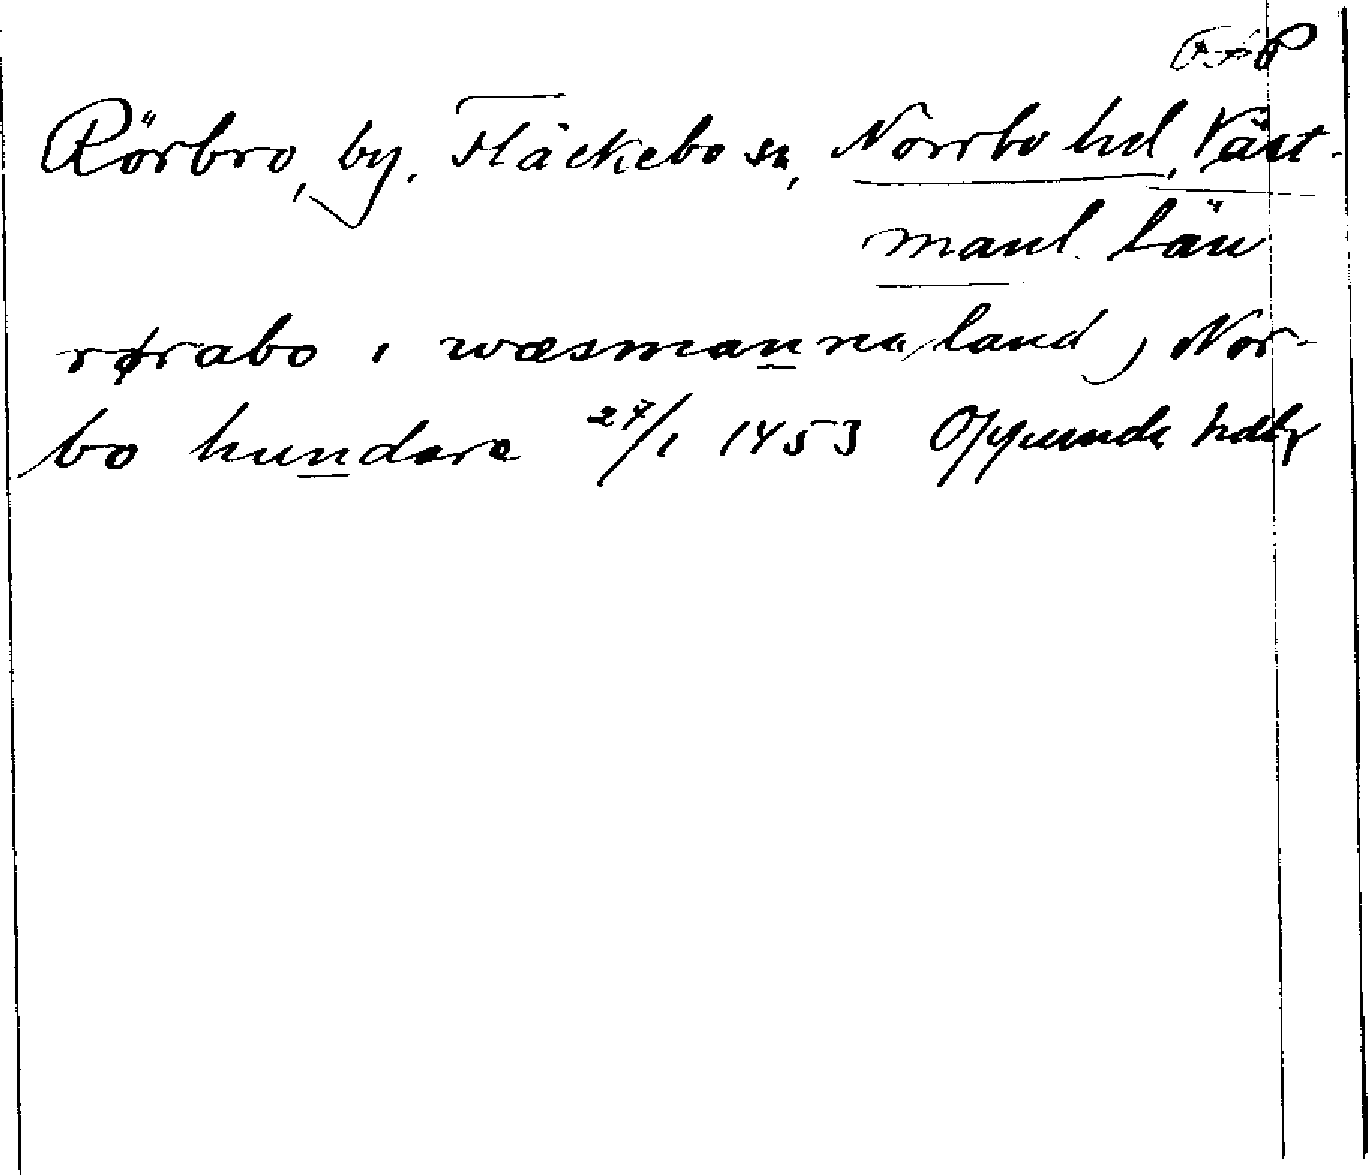 Rörbro, by, Fläckebo sn, Norrbo hd, Väst-
manl. län
rørabo i wæsmanna land, Nor-
bo hundare 27/1 1453 Oppunda hdbr